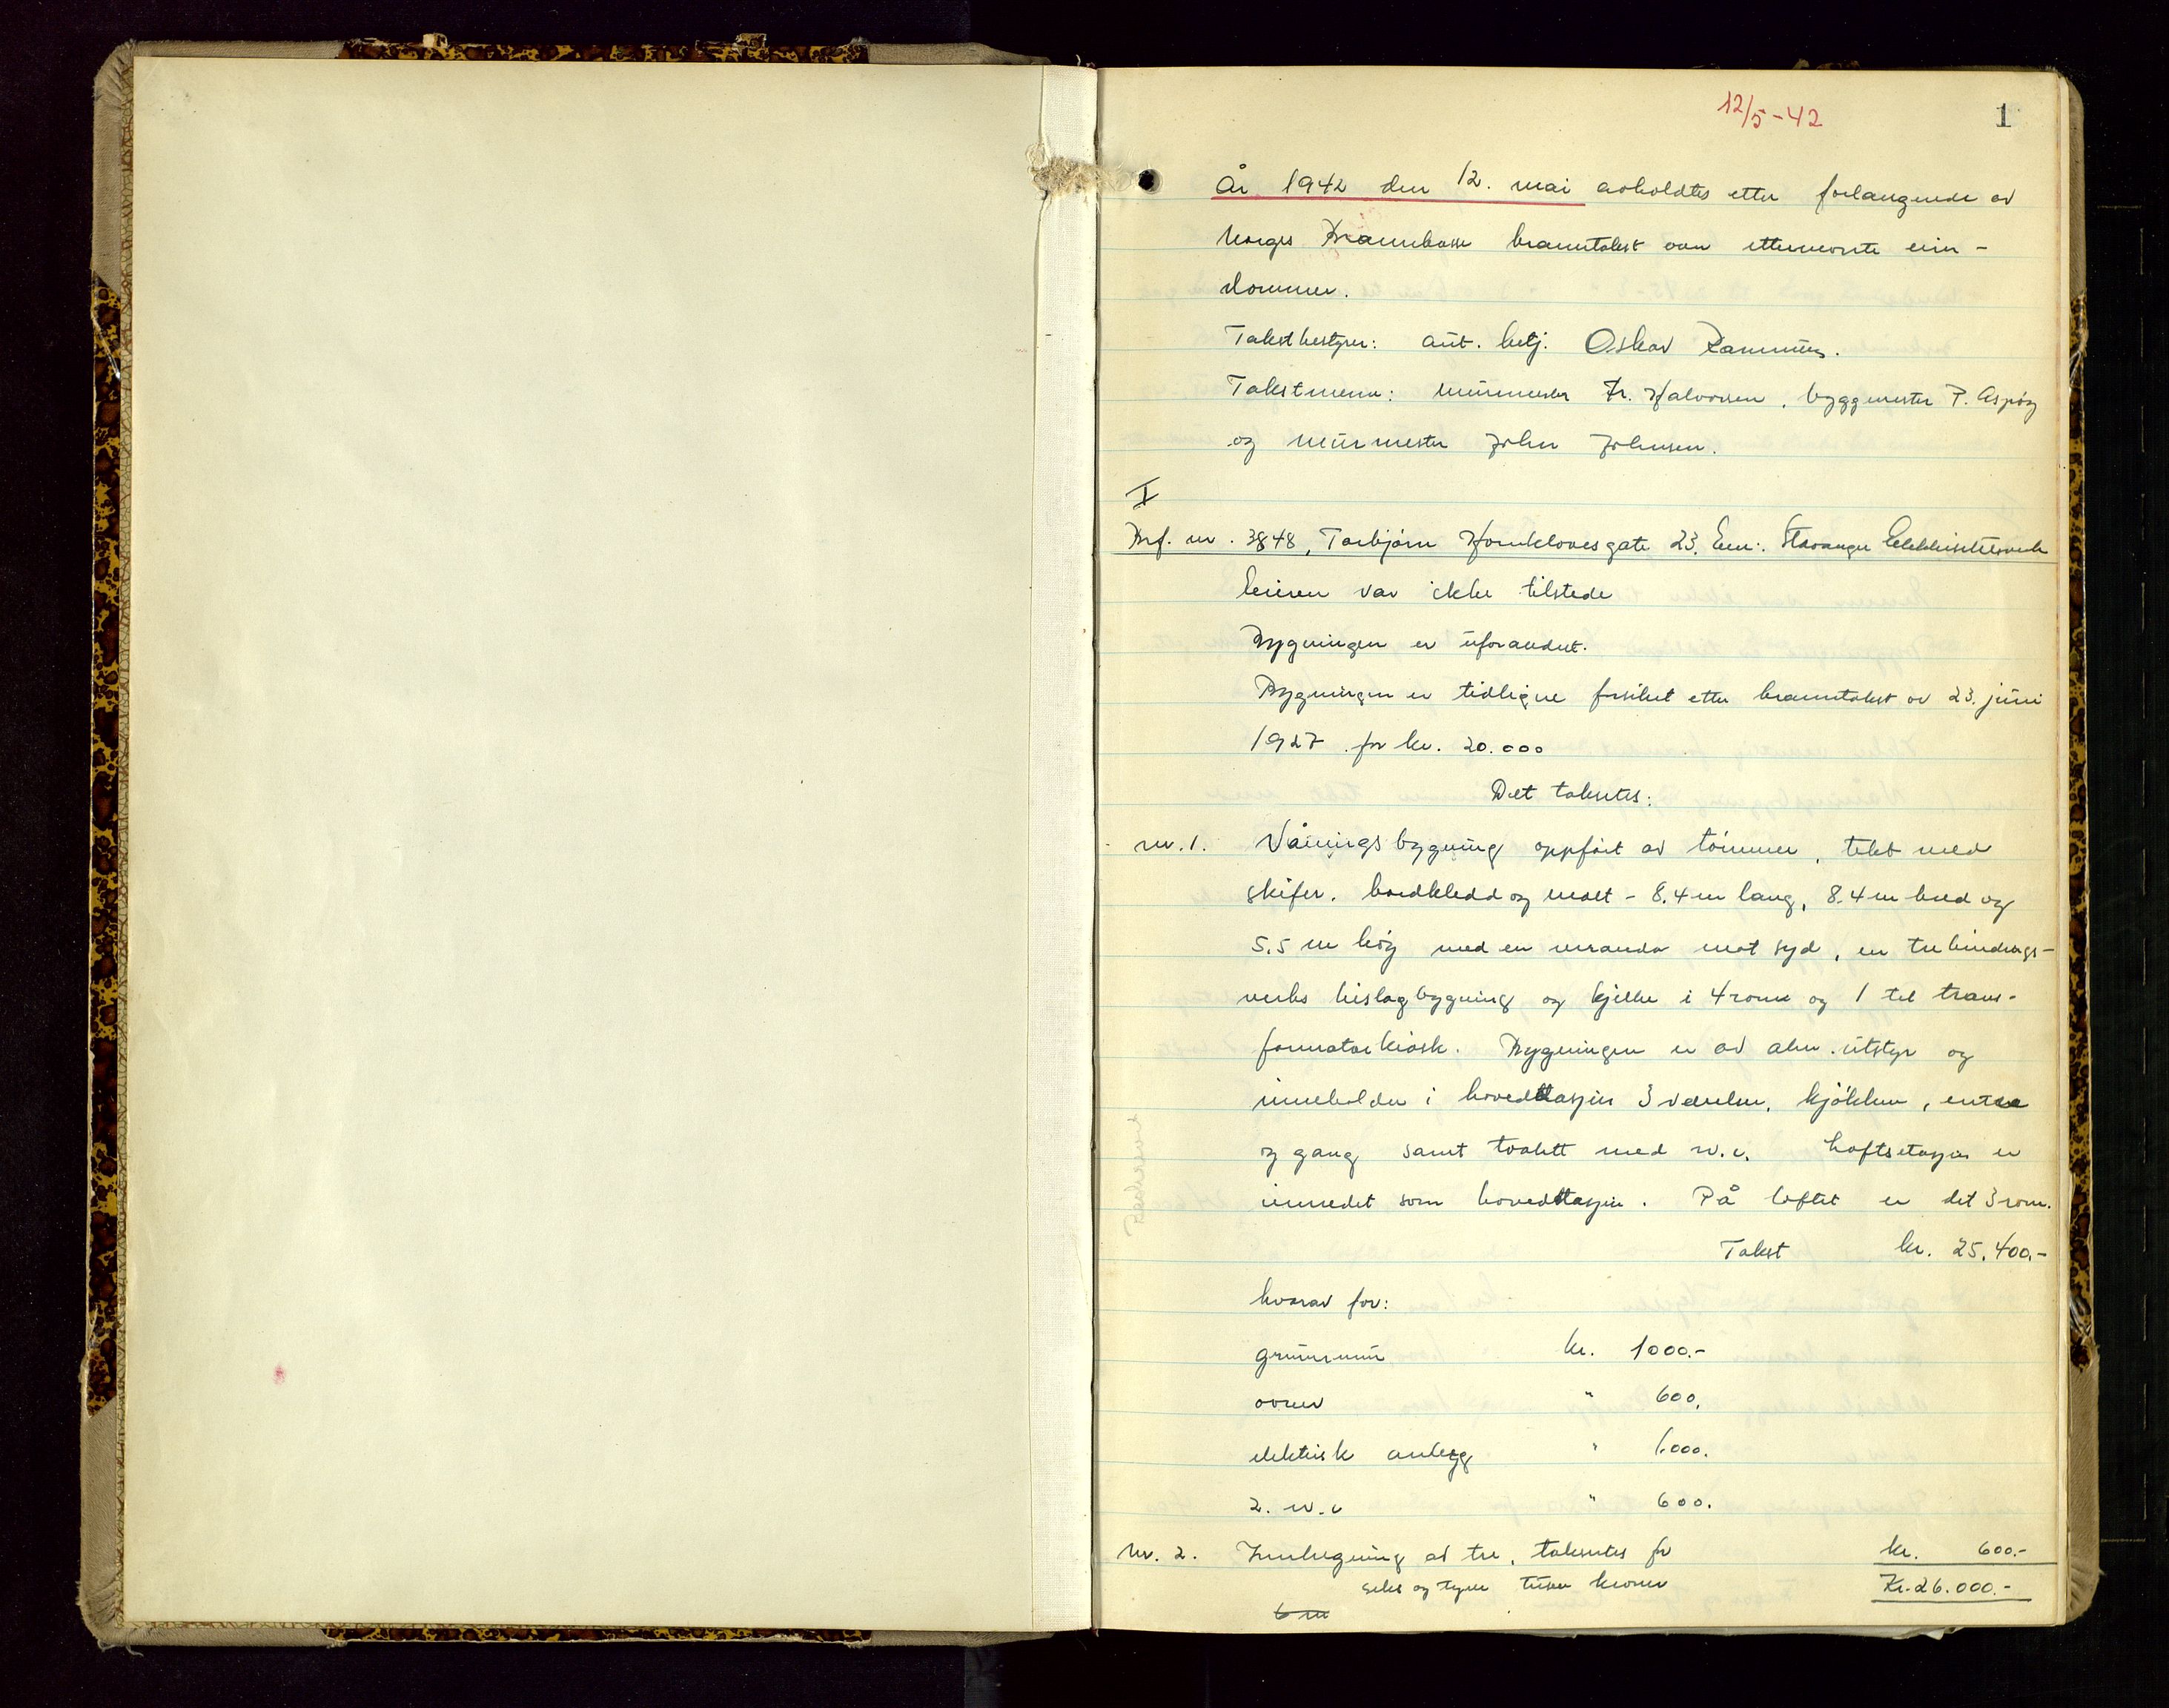 12/5-42
1
År 1942 den 12. mai avholdtes etter forlangende av
Norges Brannkasse branntakst over etternevnte eien-
dommer.
Takstbestyrer: aut. betj. Oskar Rasmussen.
Takstmenn: murmester Fr. Halvorsen, byggmester P. Aspøy
og murmester John Johnsen.
I
Brf. nr. 3848, Torbjørn Hornklovesgate 23. Eier: Stavanger Elektrisitetsverk
Eieren var ikke tilstede
Bygningen er uforandret.
Bygningen er tidligere forsikret etter branntakst av 23. juni
1927 for kr. 20.000
Det taksertes:
nr. 1. Våningsbygning oppført av tømmer, tekt med
skifer. bordkledd og malt - 8.4 m lang, 8.4 m bred og
5.5 m høy med en veranda mot syd, en tre bindings-
verks bislagbygning og kjeller i 4 rom og 1 til trans-
formatorkiosk. Bygningen er av alm. utstyr og
inneholder i hovedetasjen 3 værelser, kjøkken, entre
og gang samt toalett med w.c. Loftsetasjen er
innredet som hovedetasjen. På loftet er det 3 rom.
Takst kr. 25.400.-
hvorav for:
grunnmur kr. 1000.-
ovner " 600.
elektrisk anlegg " 1.000.
2. w.c " 600.
Nr. 2. Innhegning av tre, taksertes for kr. 600.-
seks og tyve tusen kroner Kr. 26.000.-
6 m